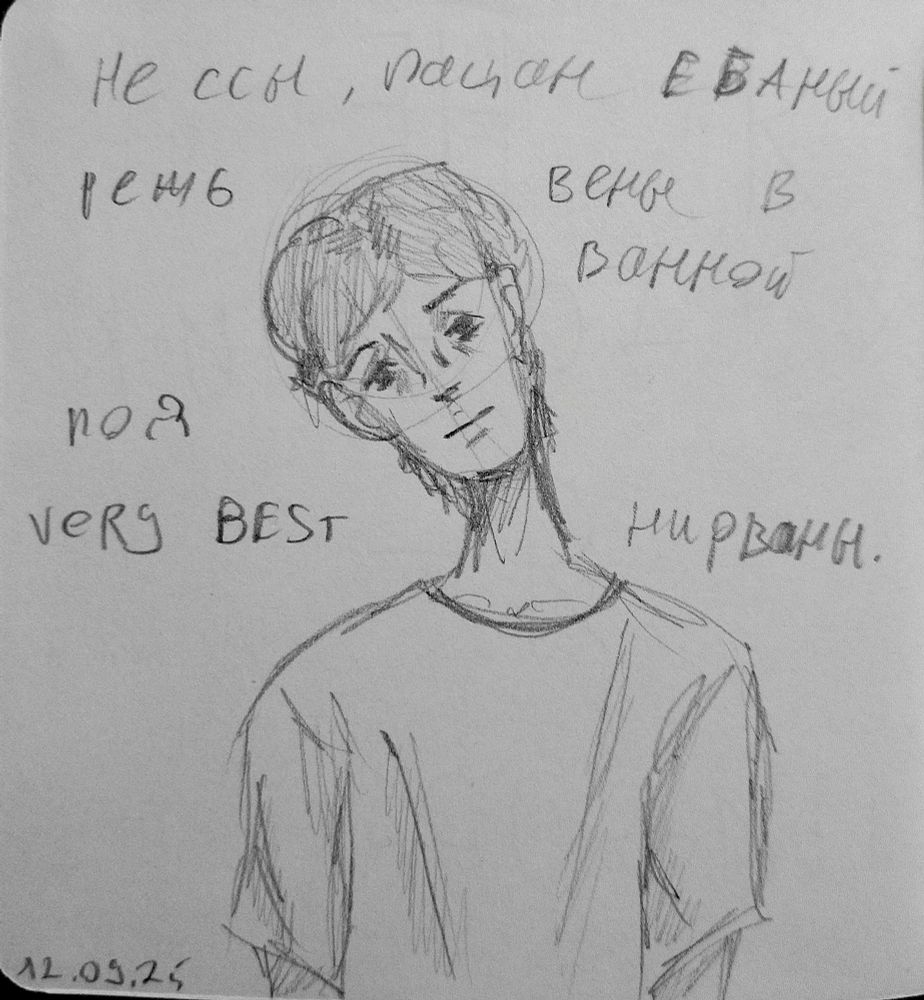 Не ссы, пацан ЕБАНЫЙ
режь вены в
ванной
поя
veRy BEST нирваны.
12.09.25